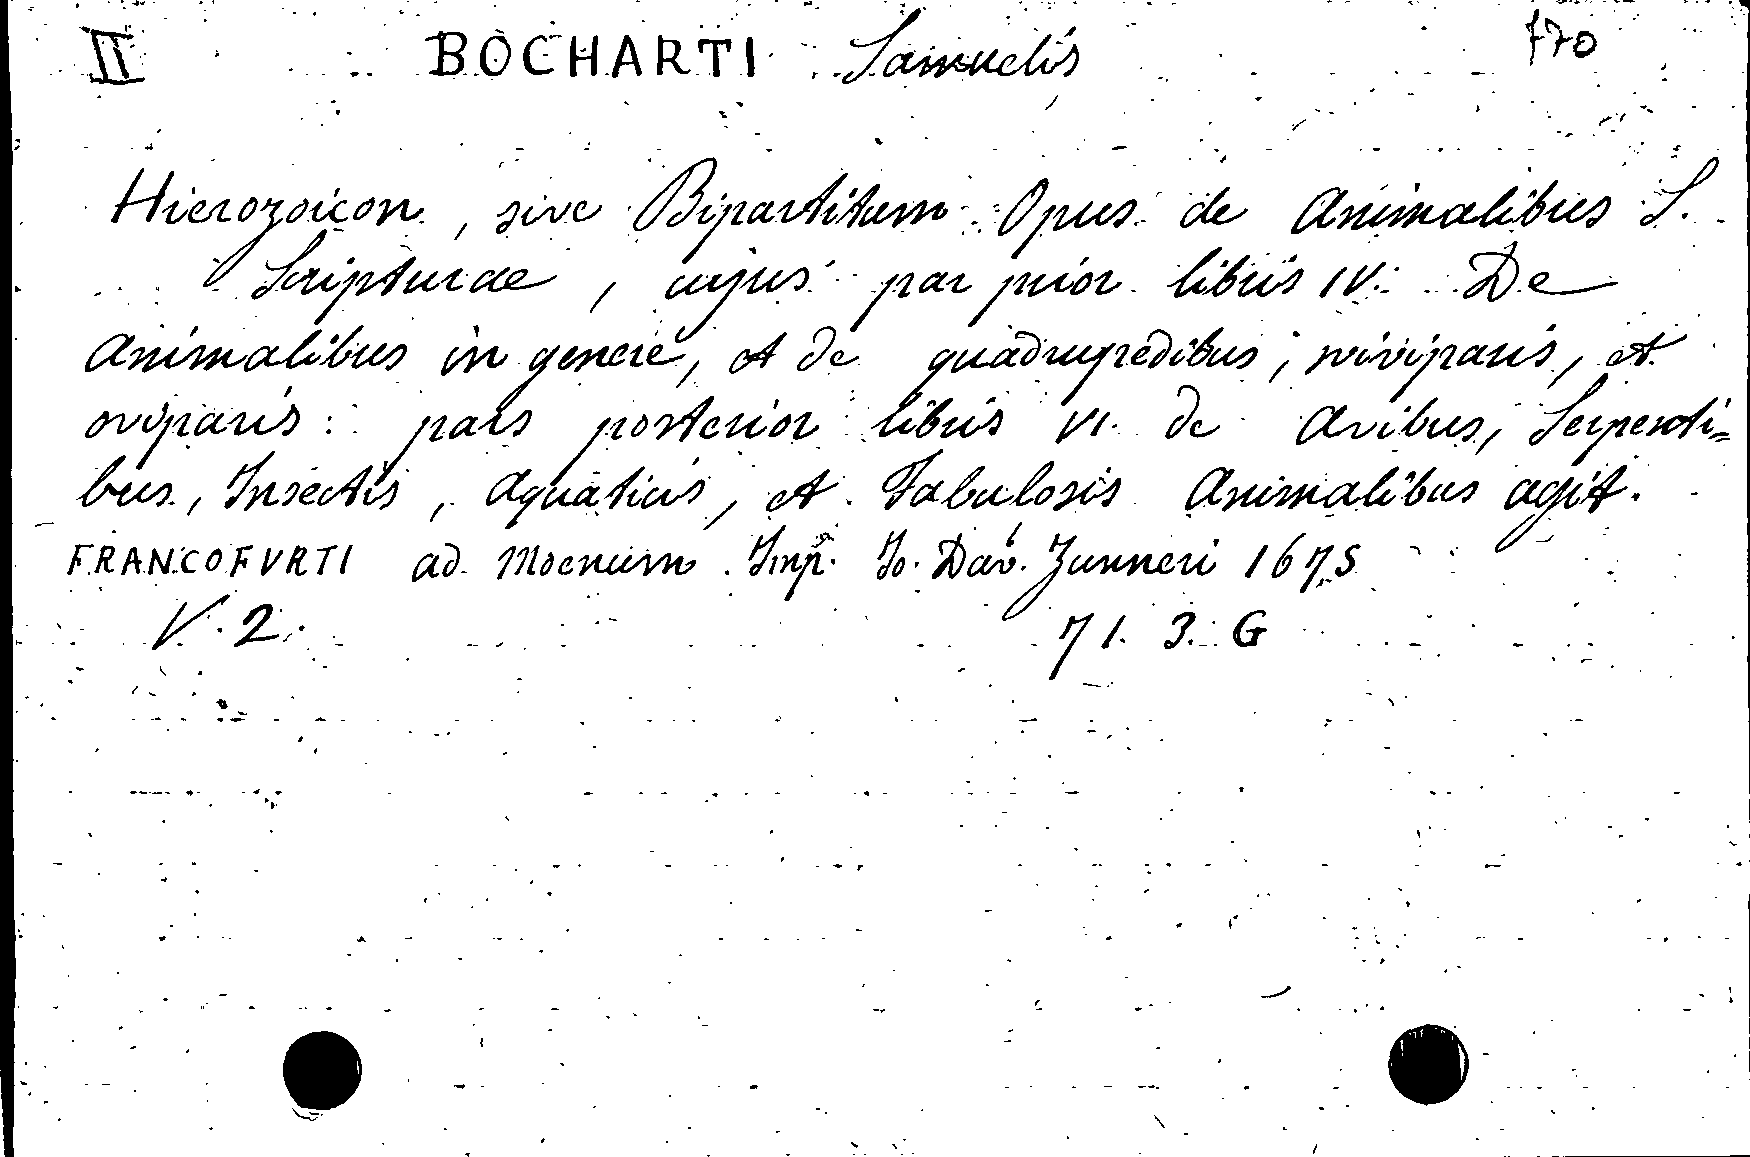 II BOCHARTI Samuelis 770
Hierozoicon, sive Bipartitum Opus de Animalibus S.
Scripturae, cujus par prior libris IV. De
Animalibus in genere, et de quadrupedibus, viviparis, et
oviparis: pars posterior libris VI. de Avibus, Serpenti=
bus, Insectis, Aquaticis, et Fabulosis Animalibus agit.
FRANCOFVRTI ad Moenum. Imp. Jo. Dav. Zunneri 1675
V. 2. 71. 3. G